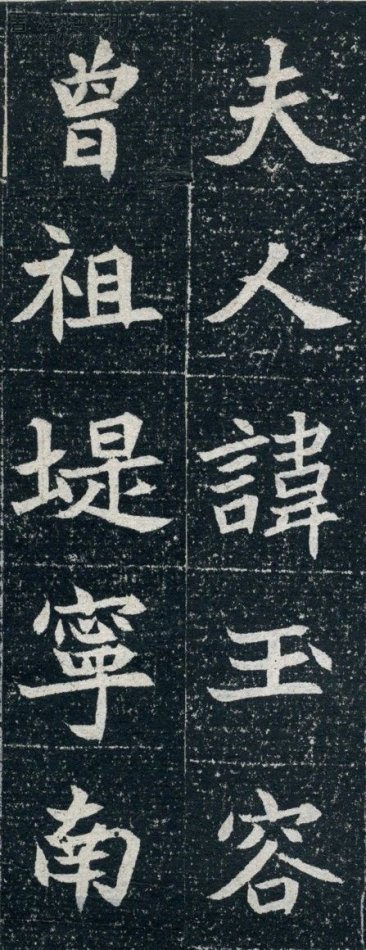 夫人諱玉容
曾祖堤寧南